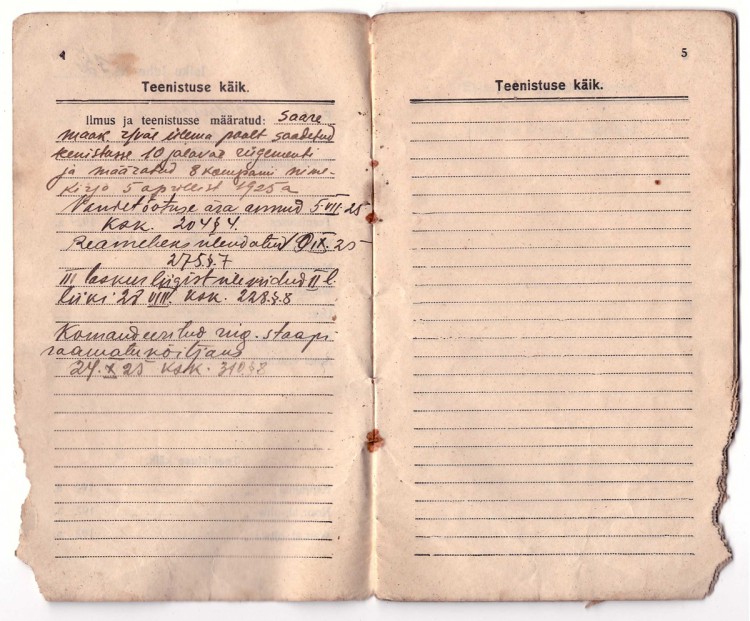 4
Teenistuse käik.
Ilmus ja teenistusse määratud: Saare
maak. ülema poolt saadetud
teenistusse 10 jalaväe rügementi
ja määratud 8 kompanii nime-
kirja 5 aprillist 1925 a
Vandetõotuse ära annud 5 VII 25
Käsk. 204 § 4.
Reameheks ülendatud IX. 25
275 § 7
III laskur liigist üleviidud II l.
liiki 28 VIII. Käsk. 228 § 8
Komandeeritud rüg. staapi
raamatuköitjaks
24. X 25 Käsk. 310 § 2
5
Teenistuse käik.